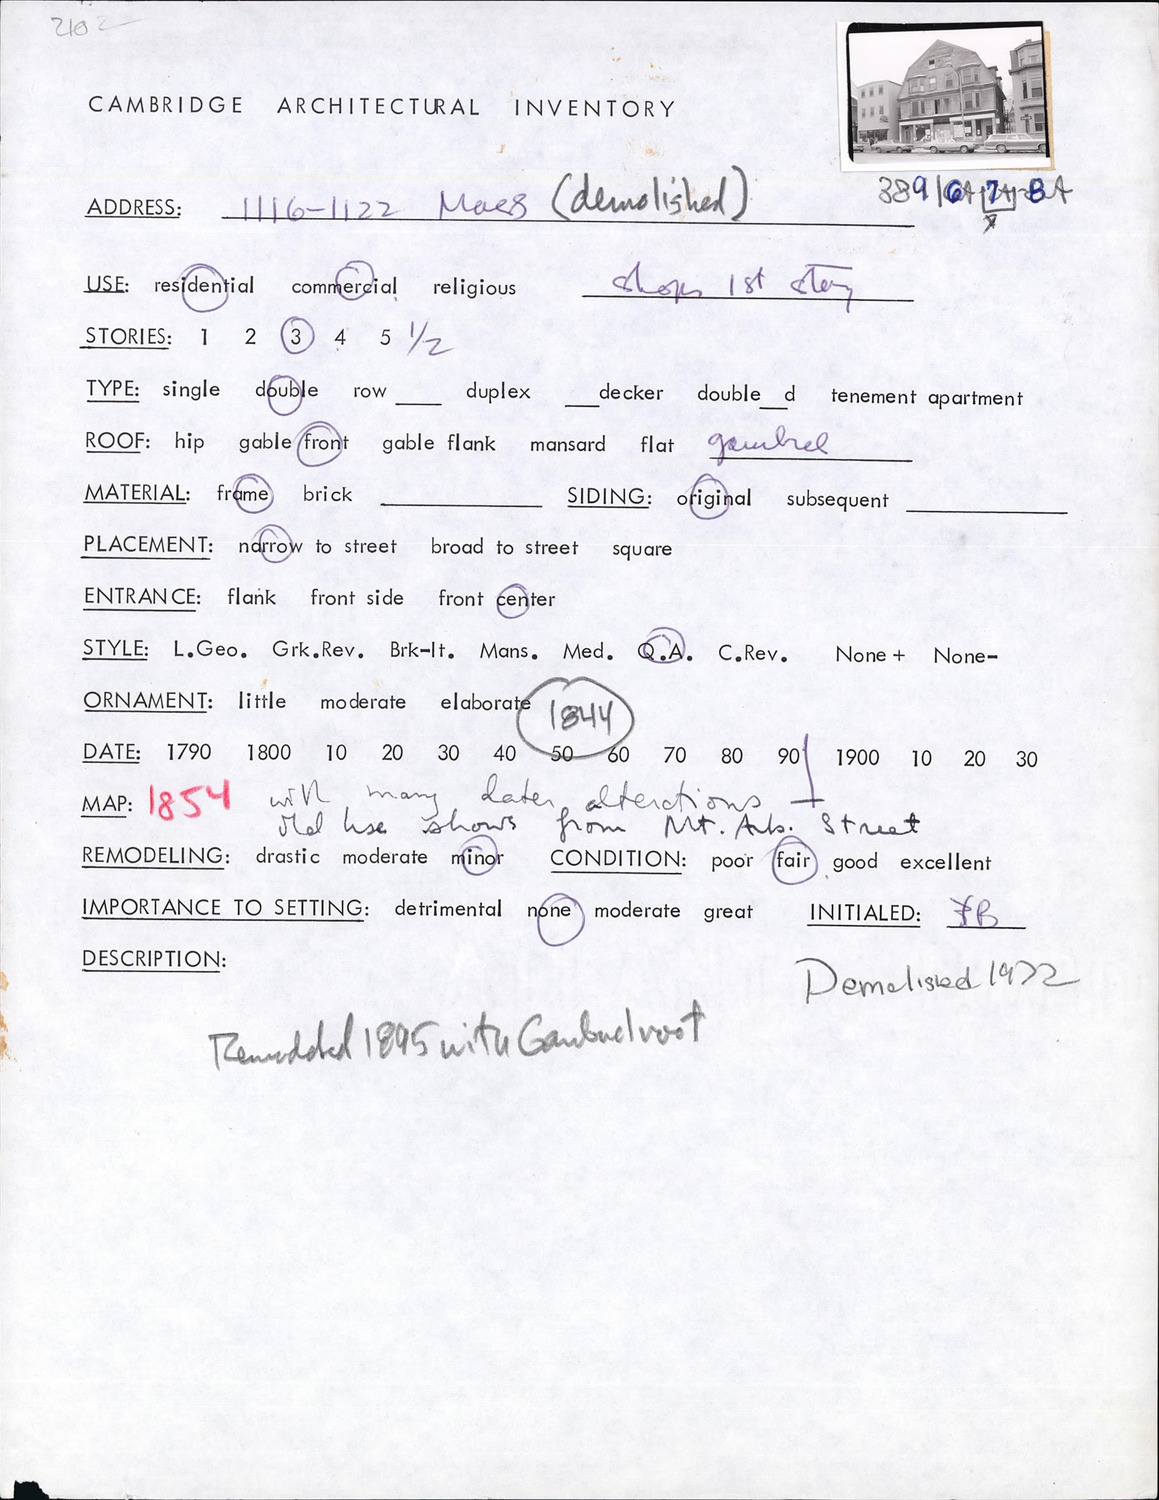 2102
CAMBRIDGE ARCHITECTURAL INVENTORY
ADDRESS: 1116-1122 Mass (demolished)
389/6A-7A-8A
USE: residential commercial religious shops 1st story
STORIES: 1 2 3 4 5 1/2
TYPE: single double row ___ duplex ___decker double__d tenement apartment
ROOF: hip gable front gable flank mansard flat gambrel
MATERIAL: frame brick SIDING: original subsequent
PLACEMENT: narrow to street broad to street square
ENTRANCE: flank front side front center
STYLE: L.Geo. Grk.Rev. Brk-It. Mans. Med. Q.A. C.Rev. None+ None-
ORNAMENT: little moderate elaborate 1844
DATE: 1790 1800 10 20 30 40 50 60 70 80 90 1900 10 20 30
MAP: 1854 with many later alterations
old hse shows from Mt. Aub. Street
REMODELING: drastic moderate minor CONDITION: poor fair good excellent
IMPORTANCE TO SETTING: detrimental none moderate great INITIALED:
DESCRIPTION:
Demolished 1972
Remodeled 1895 with Gambrel roof